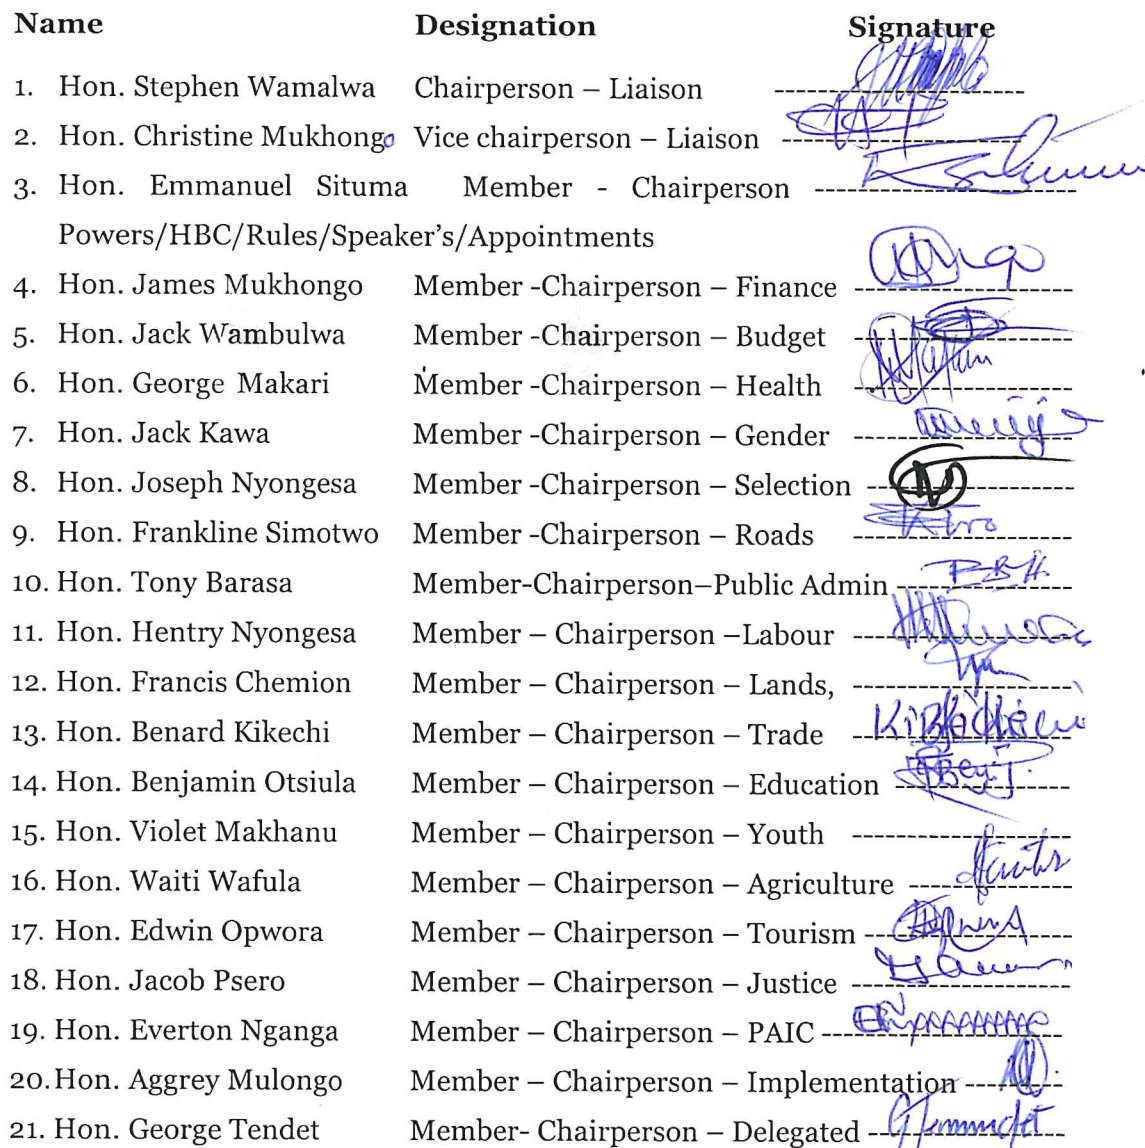 Name Designation Signature
1. Hon. Stephen Wamalwa Chairperson – Liaison
2. Hon. Christine Mukhongo Vice chairperson – Liaison
3. Hon. Emmanuel Situma Member - Chairperson
Powers/HBC/Rules/Speaker's/Appointments
4. Hon. James Mukhongo Member -Chairperson – Finance
5. Hon. Jack Wambulwa Member -Chairperson – Budget
6. Hon. George Makari Member -Chairperson – Health
7. Hon. Jack Kawa Member -Chairperson – Gender
8. Hon. Joseph Nyongesa Member -Chairperson – Selection
9. Hon. Frankline Simotwo Member -Chairperson – Roads
10. Hon. Tony Barasa Member-Chairperson–Public Admin
11. Hon. Hentry Nyongesa Member – Chairperson –Labour
12. Hon. Francis Chemion Member – Chairperson – Lands,
13. Hon. Benard Kikechi Member – Chairperson – Trade
14. Hon. Benjamin Otsiula Member – Chairperson – Education
15. Hon. Violet Makhanu Member – Chairperson – Youth
16. Hon. Waiti Wafula Member – Chairperson – Agriculture
17. Hon. Edwin Opwora Member – Chairperson – Tourism
18. Hon. Jacob Psero Member – Chairperson – Justice
19. Hon. Everton Nganga Member – Chairperson – PAIC
20. Hon. Aggrey Mulongo Member – Chairperson – Implementation
21. Hon. George Tendet Member- Chairperson – Delegated